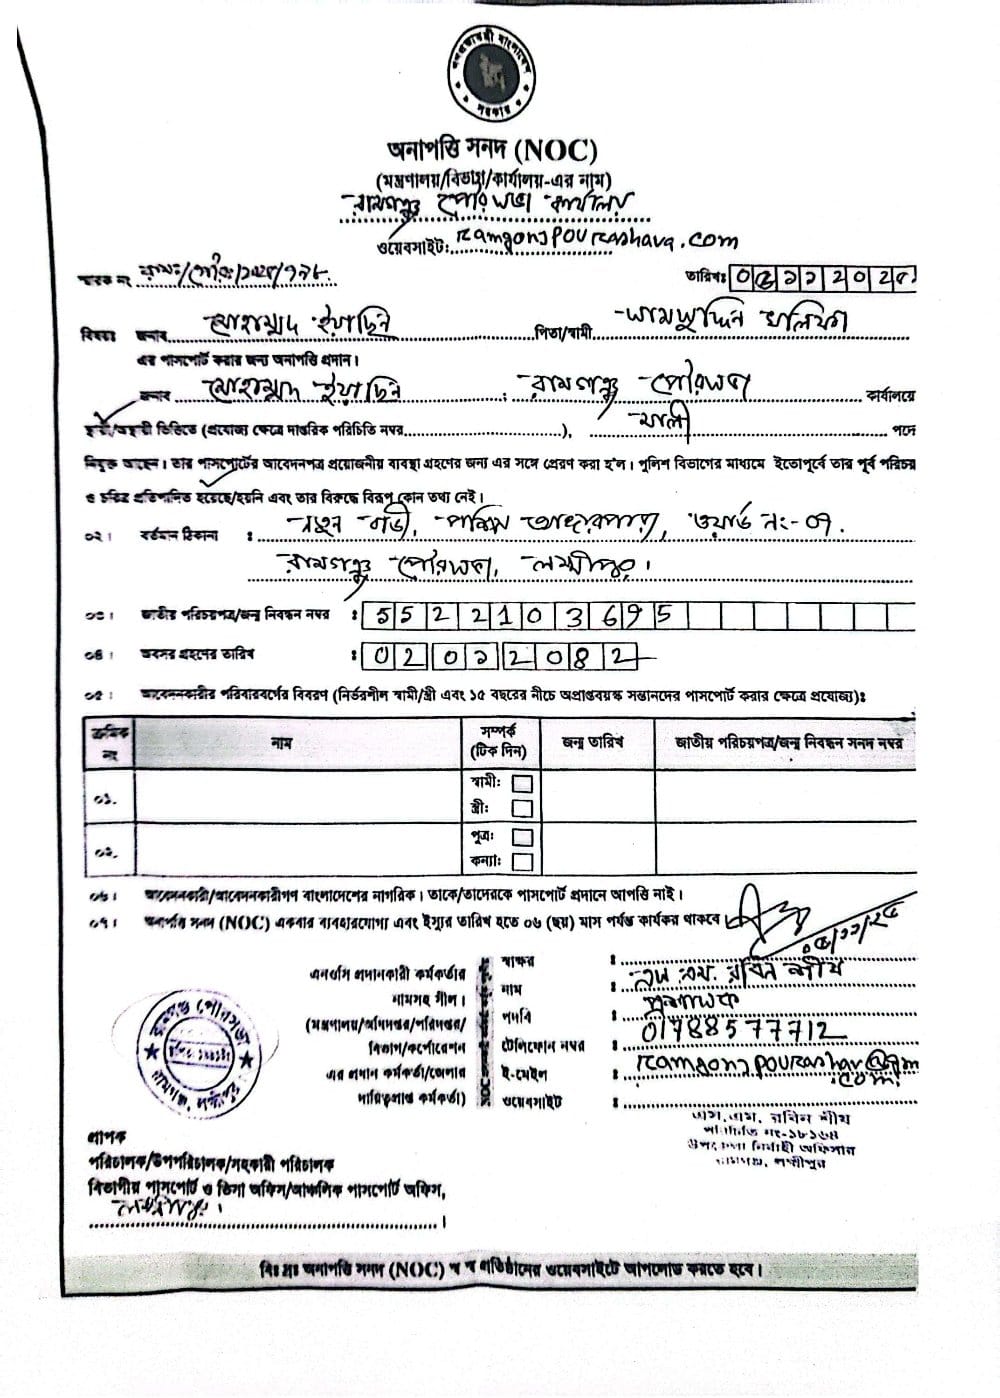 গণপ্রজাতন্ত্রী বাংলাদেশ
সরকার
অনাপত্তি সনদ (NOC)
(মন্ত্রণালয়/বিভাগ/কার্যালয়-এর নাম)
রামগঞ্জ পৌরসভা কার্যালয়
ওয়েবসাইট: ramgonjpourashava.com
স্মারক নং রাম:/পৌর:/২০২৫/
তারিখ: 05112025
বিষয়ঃ জনাব মোহাম্মদ ইয়াছিন পিতা/স্বামী সামছুদ্দিন খলিফা
এর পাসপোর্ট করার জন্য অনাপত্তি প্রদান।
জনাব মোহাম্মদ ইয়াছিন , রামগঞ্জ পৌরসভা কার্যালয়ে
স্থায়ী/অস্থায়ী ভিত্তিতে (প্রযোজ্য ক্ষেত্রে দাপ্তরিক পরিচিতি নম্বর), মালী পদে
নিযুক্ত আছেন। তার পাসপোর্টের আবেদনপত্র প্রয়োজনীয় ব্যবস্থা গ্রহণের জন্য এর সঙ্গে প্রেরণ করা হ'ল। পুলিশ বিভাগের মাধ্যমে ইতোপূর্বে তার পূর্ব পরিচয়
ও চরিত্র প্রতিপাদিত হয়েছে/হয়নি এবং তার বিরুদ্ধে বিরূপ কোন তথ্য নেই।
০২। বর্তমান ঠিকানা : নতুন বাড়ী, পশ্চিম আঙ্গারপাড়া, ওয়ার্ড নং-০৭.
রামগঞ্জ পৌরসভা, লক্ষ্মীপুর।
০৩। জাতীয় পরিচয়পত্র/জন্ম নিবন্ধন নম্বর : 5522103695
০৪। অবসর গ্রহণের তারিখ : 02012082
০৫। আবেদনকারীর পরিবারবর্গের বিবরণ (নির্ভরশীল স্বামী/স্ত্রী এবং ১৫ বছরের নীচে অপ্রাপ্তবয়স্ক সন্তানদের পাসপোর্ট করার ক্ষেত্রে প্রযোজ্য):
ক্রমিক নং নাম সম্পর্ক (টিক দিন) জন্ম তারিখ জাতীয় পরিচয়পত্র/জন্ম নিবন্ধন সনদ নম্বর
০১. স্বামী:
স্ত্রী:
০২. পুত্র:
কন্যা:
০৬। আবেদনকারী/আবেদনকারীগণ বাংলাদেশের নাগরিক। তাকে/তাদেরকে পাসপোর্ট প্রদানে আপত্তি নাই।
০৭। অনাপত্তি সনদ (NOC) একবার ব্যবহারযোগ্য এবং ইস্যুর তারিখ হতে ০৬ (ছয়) মাস পর্যন্ত কার্যকর থাকবে।
০৫/১১/২৫
এনওসি প্রদানকারী কর্মকর্তার
নামসহ সীল।
(মন্ত্রণালয়/অধিদপ্তর/পরিদপ্তর/
বিভাগ/কর্পোরেশন
এর প্রধান কর্মকর্তা/জেলার
দায়িত্বপ্রাপ্ত কর্মকর্তা)
স্বাক্ষর :
নাম : এস. এম. রবিন শীষ
পদবি : প্রশাসক
টেলিফোন নম্বর : 01788577712
ই-মেইল : ramgonjpourashav@gm
.com
ওয়েবসাইট :
এস.এম. রবিন শীষ
পরিচিতি নং-১৮১৬৪
উপজেলা নির্বাহী অফিসার
রামগঞ্জ, লক্ষ্মীপুর
রামগঞ্জ পৌরসভা
রামগঞ্জ, লক্ষ্মীপুর
প্রাপক
পরিচালক/উপপরিচালক/সহকারী পরিচালক
বিভাগীয় পাসপোর্ট ও ভিসা অফিস/আঞ্চলিক পাসপোর্ট অফিস,
লক্ষ্মীপুর।
বিঃ দ্রঃ অনাপত্তি সনদ (NOC) স্ব স্ব প্রতিষ্ঠানের ওয়েবসাইটে আপলোড করতে হবে।